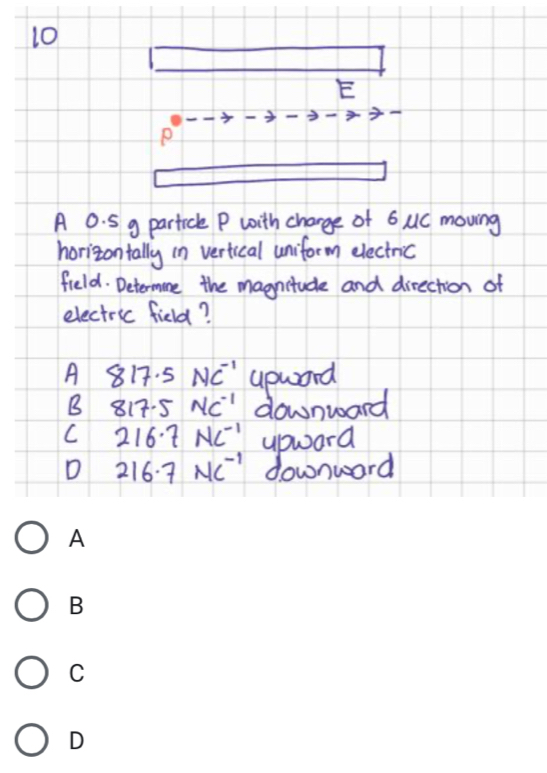 10
E
P
A 0.5 g particle P with charge of 6 μC moving
horizontally in vertical uniform electric
field. Determine the magnitude and direction of
electric field?
A 817.5 NC⁻¹ upward
B 817.5 NC⁻¹ downward
C 216.7 NC⁻¹ upward
D 216.7 NC⁻¹ downward
A
B
C
D